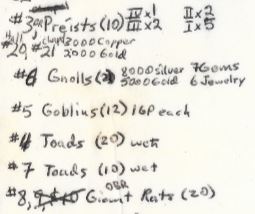 #3 Preists (10) IV x1 II x2
III x2 I x5
#20, #21 3000 Copper
2000 Gold
#6 Gnolls 8000 silver 7 Gems
5200 Gold 6 Jewelry
#5 Goblins (12) 16P each
#4 Toads (20) wet
#7 Toads (10) wet
#8, OBR
Giant Rats (20)